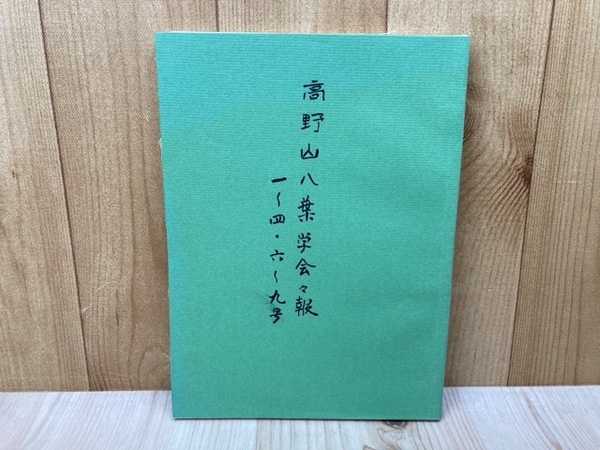 高野山八葉学会々報
一〜四・六〜九号